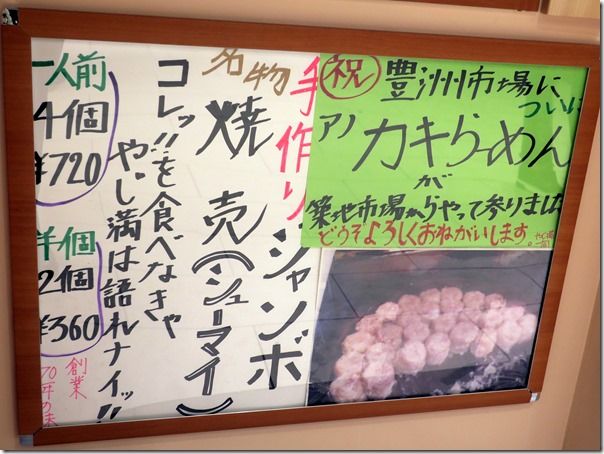 祝 豊洲市場に
ついに
アノ カキらーめん
が
築地市場からやって参りました
どうぞよろしくおねがいします
名物
手作り
ジャンボ
焼売(シューマイ)
コレッ!!を食べなきゃ
やじ満は語れナイッ!!
一人前
4個
¥720
半個
2個
¥360
創業
70年の味